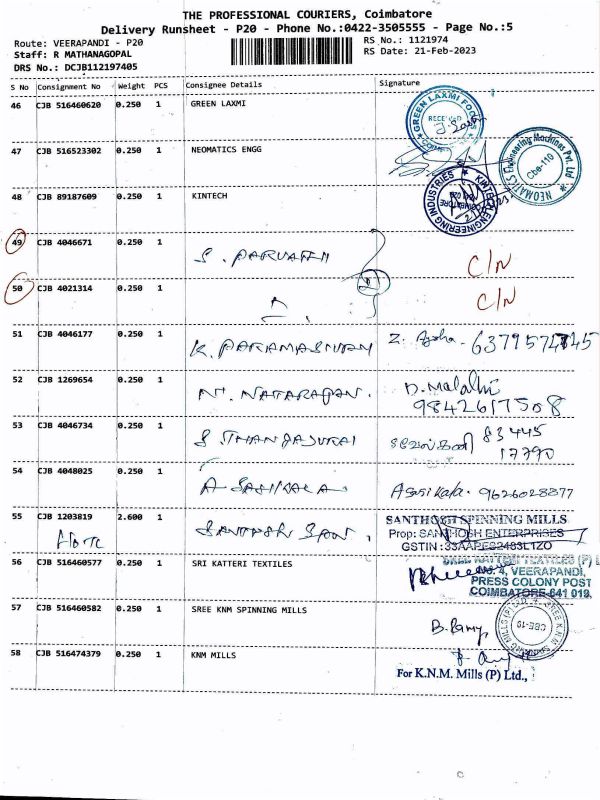 THE PROFESSIONAL COURIERS, Coimbatore
Delivery Runsheet - P20 - Phone No.:0422-3505555 - Page No.:5
Route: VEERAPANDI - P20
RS No.: 1121974
Staff: R MATHANAGOPAL
RS Date: 21-Feb-2023
DRS No.: DCJB112197405
S No Consignment No Weight PCS Consignee Details Signature
46 CJB 516460620 0.250 1 GREEN LAXMI
GREEN LAXMI FOODS
RECEIVED
47 CJB 516523302 0.250 1 NEOMATICS ENGG
NEOMATICS Engineering Machines Pvt. Ltd
Cbe-110
48 CJB 89187609 0.250 1 KINTECH
KINTECH ENGINEERING INDUSTRIES
COIMBATORE
49 CJB 4046671 0.250 1 S. PARVATHI C/N
50 CJB 4021314 0.250 1 C/N
51 CJB 4046177 0.250 1 K. PARAMASIVAM
52 CJB 1269654 0.250 1 N. NATARAJAN. D. Malathi
9842617508
53 CJB 4046734 0.250 1 83445
17790
54 CJB 4048025 0.250 1 A. SASIKALA A. 9626028877
55 CJB 1203819 2.600 1
SANTHOSH SPINNING MILLS
Prop: SANTHOSH ENTERPRISES
GSTIN :
56 CJB 516460577 0.250 1 SRI KATTERI TEXTILES
SRI KATTERI TEXTILES (P)
No. 4, VEERAPANDI,
PRESS COLONY POST
COIMBATORE-641 019.
57 CJB 516460582 0.250 1 SREE KNM SPINNING MILLS
58 CJB 516474379 0.250 1 KNM MILLS
For K.N.M. Mills (P) Ltd.,